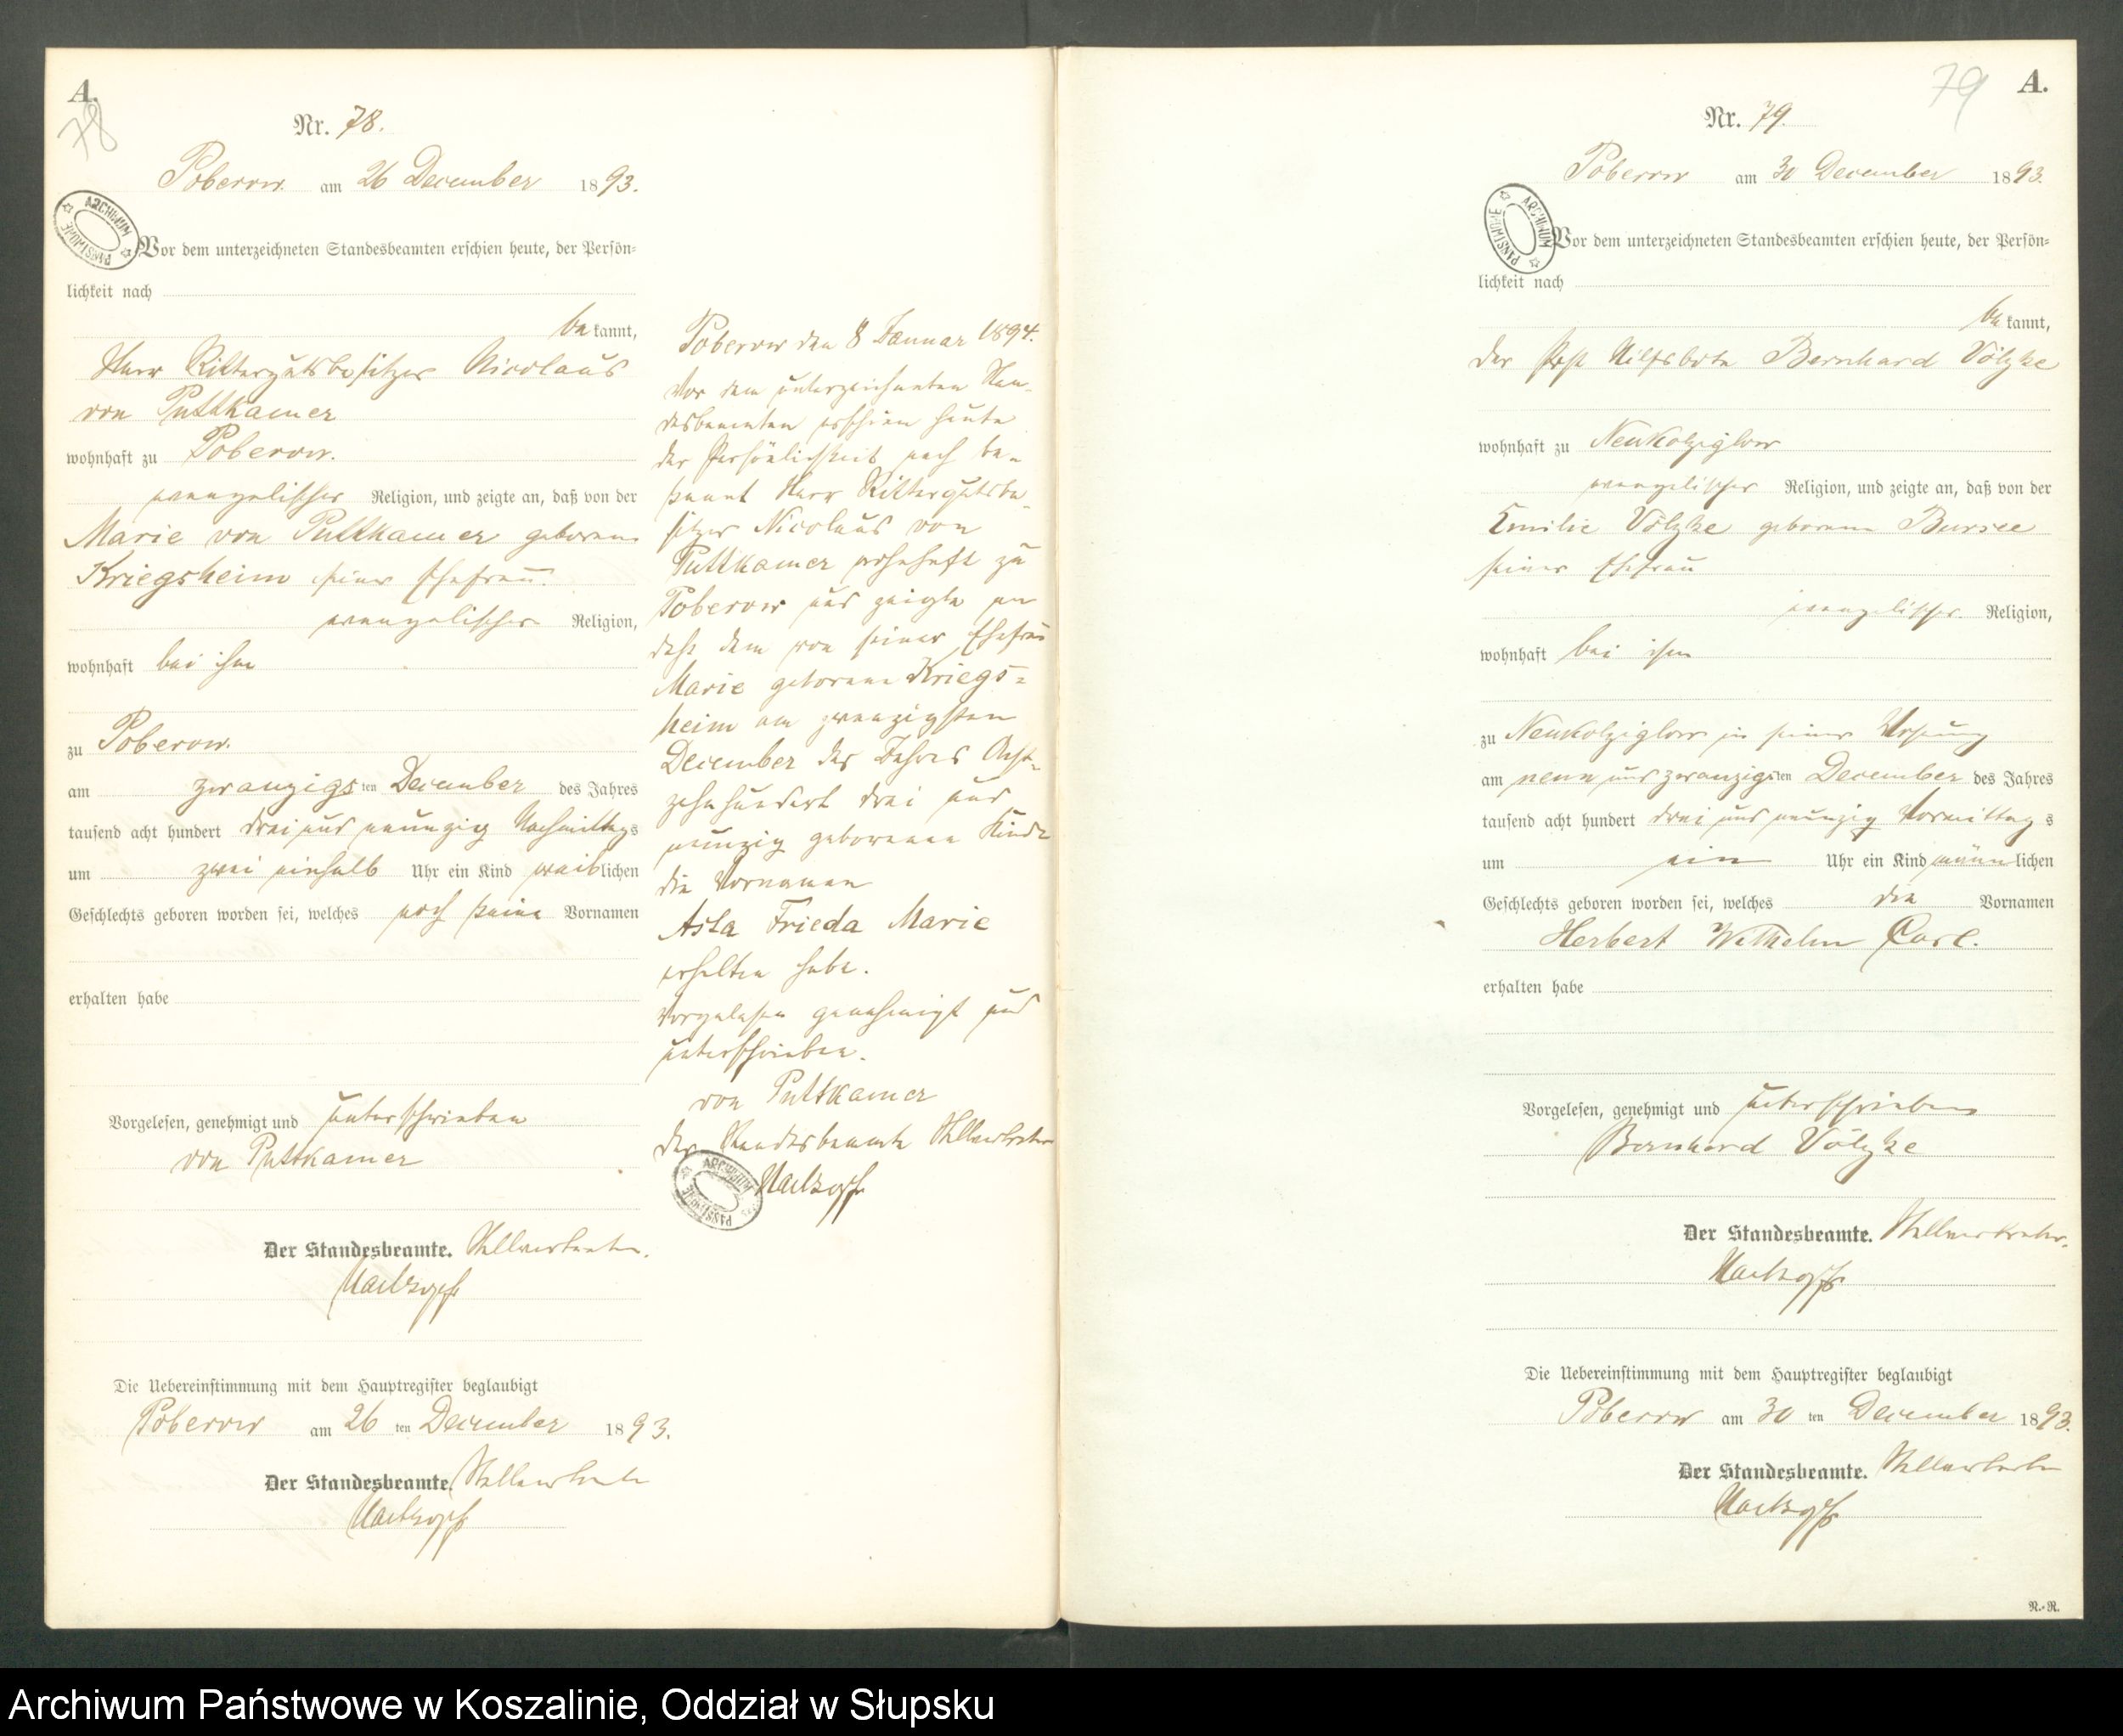 A.
78
Nr. 78.
Poberow am 26 December 1893.
Vor dem unterzeichneten Standesbeamten erschien heute, der Persön=
lichkeit nach
bekannt,
Herr Rittergutsbesitzer Nicolaus
von Puttkamer
wohnhaft zu Poberow.
evangelischer Religion, und zeigte an, daß von der
Marie von Puttkamer geborene
Kriegsheim seiner Ehefrau
evangelischer Religion,
wohnhaft bei ihm
zu Poberow.
am zwanzigsten December des Jahres
tausend acht hundert drei und neunzig Nachmittags
um zwei einhalb Uhr ein Kind weiblichen
Geschlechts geboren worden sei, welches noch keine Vornamen
erhalten habe
Vorgelesen, genehmigt und unterschrieben
von Puttkamer
Der Standesbeamte. Stellvertreter.
Die Uebereinstimmung mit dem Hauptregister beglaubigt
Poberow am 26 ten December 1893.
Der Standesbeamte. Stellvertreter
Poberow den 8 Januar 1894.
Vor dem unterzeichneten Stan-
desbeamten erschien heute
der Persönlichkeit nach be-
kannt Herr Rittergutsbe-
sitzer Nicolaus von
Puttkamer wohnhaft zu
Poberow und zeigte an
daß dem von seiner Ehefrau
Marie geborene Kriegs=
heim am zwanzigsten
December des Jahres Acht-
zehnhundert drei und
neunzig geborenen Kinde
die Vornamen
Asta Frieda Marie
erhalten habe.
Vorgelesen genehmigt und
unterschrieben.
von Puttkamer
Der Standesbeamte Stellvertreter
ARCHIWUM PAŃSTWOWE
79 A.
Nr. 79.
Poberow am 30 December 1893.
Vor dem unterzeichneten Standesbeamten erschien heute, der Persön=
lichkeit nach
bekannt,
der Post Hilfsbote Bernhard Völzke
wohnhaft zu Neukolziglow
evangelischer Religion, und zeigte an, daß von der
Emilie Völzke geborene Bursee
seiner Ehefrau
evangelischer Religion,
wohnhaft bei ihm
zu Neukolziglow in seiner Wohnung
am neun und zwanzigsten December des Jahres
tausend acht hundert drei und neunzig Vormittags
um ein Uhr ein Kind männlichen
Geschlechts geboren worden sei, welches die Vornamen
Herbert Wilhelm Carl.
erhalten habe
Vorgelesen, genehmigt und unterschrieben
Bernhard Völzke
Der Standesbeamte. Stellvertreter.
Die Uebereinstimmung mit dem Hauptregister beglaubigt
Poberow am 30 ten December 1893.
Der Standesbeamte. Stellvertreter
R.-R.
Archiwum Państwowe w Koszalinie, Oddział w Słupsku